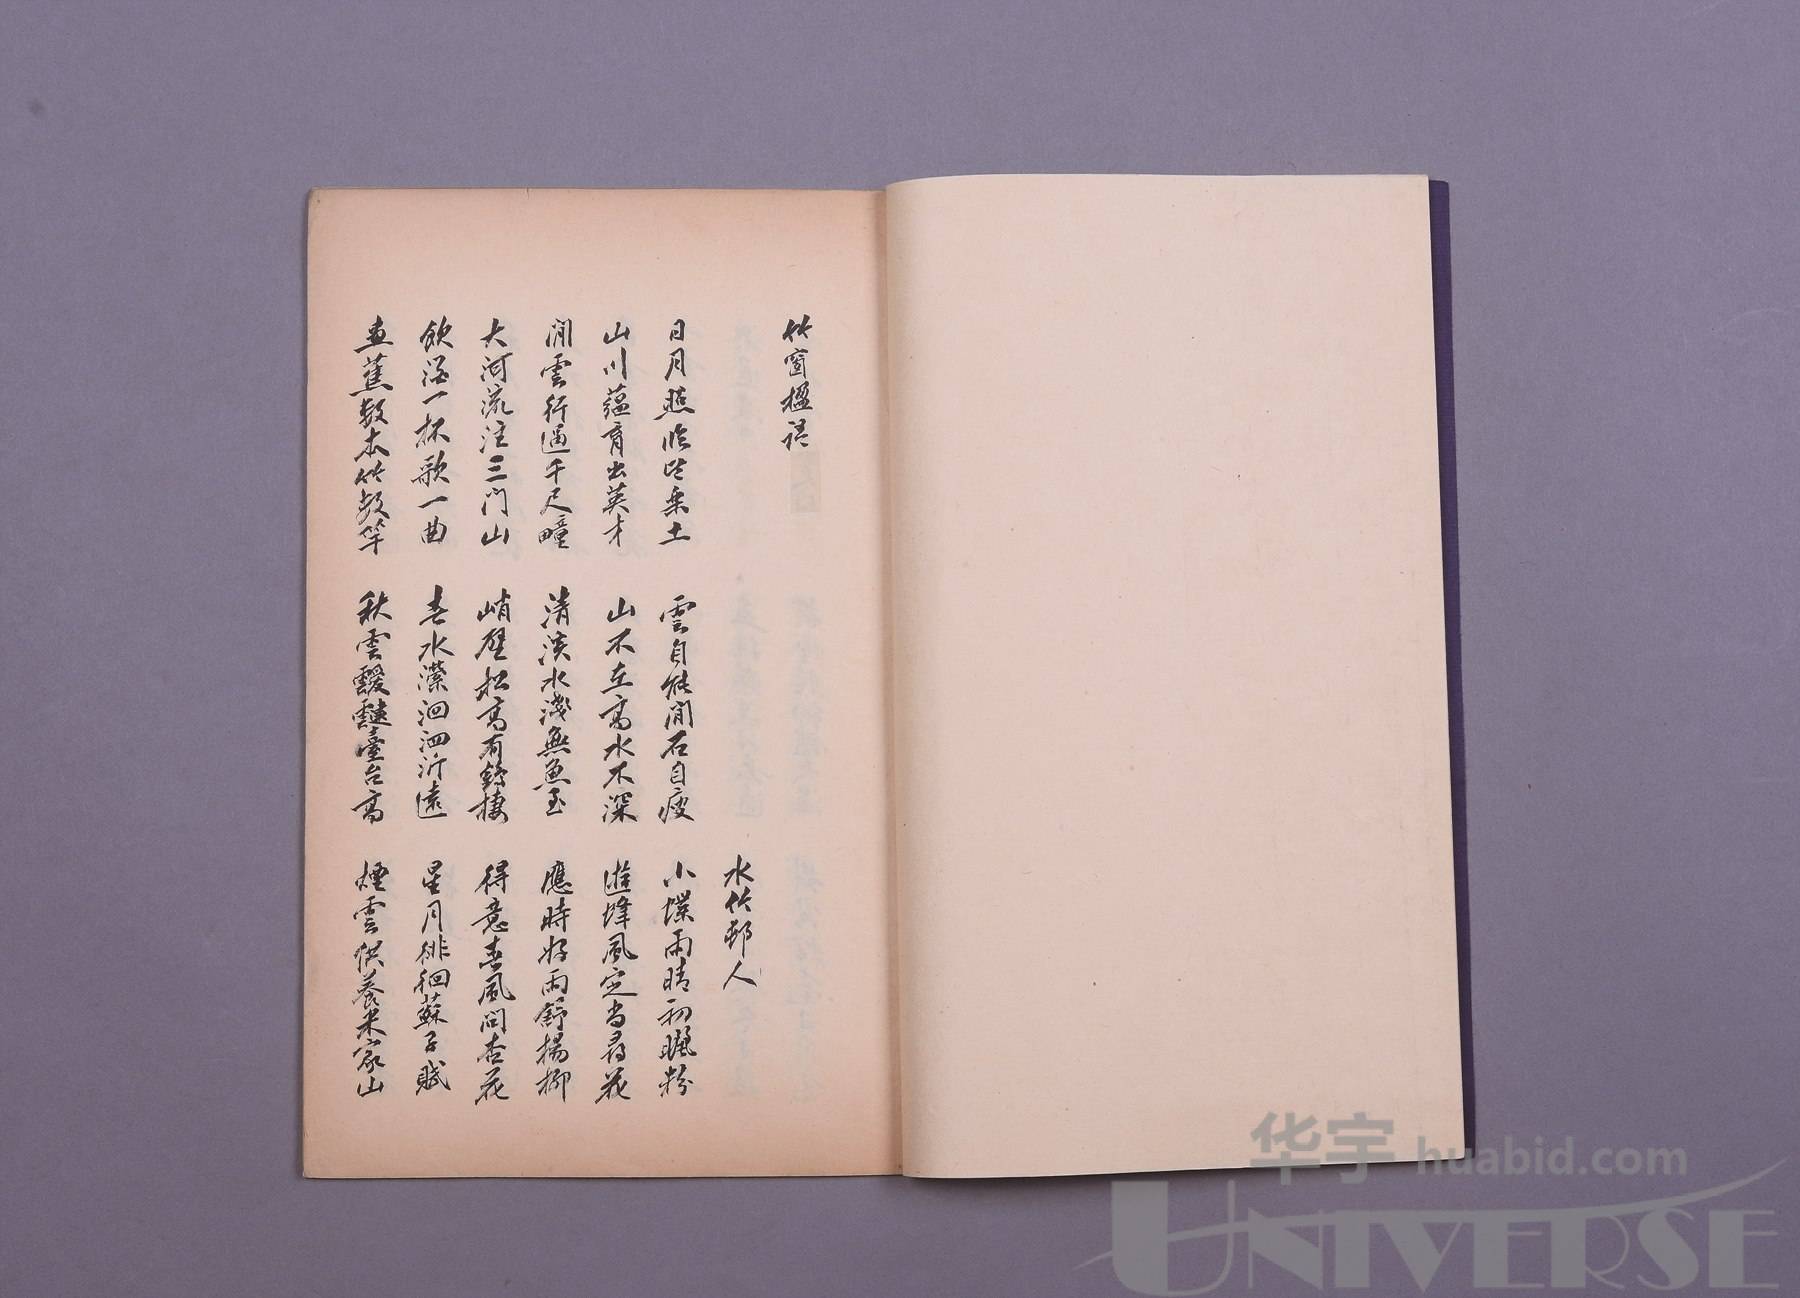 竹窗楹語
水竹邨人
日月照臨此乘土
雲自能閒石自瘦
小蝶雨晴初曬粉
山川蘊育出英才
山不在高水不深
遊蜂風定尚尋花
閒雲行過千尺疃
清淡水淺無魚玉
應時好雨舒楊柳
大河流注三門山
峭壁松高有鶴棲
得意春風問杏花
飲酒一杯歌一曲
春水瀠洄泗沂遠
星月徘徊蘇子賦
畫蕉數本竹數竿
秋雲靉靆臺台高
煙雲供養米家山
华宇 huabid.com
UNIVERSE